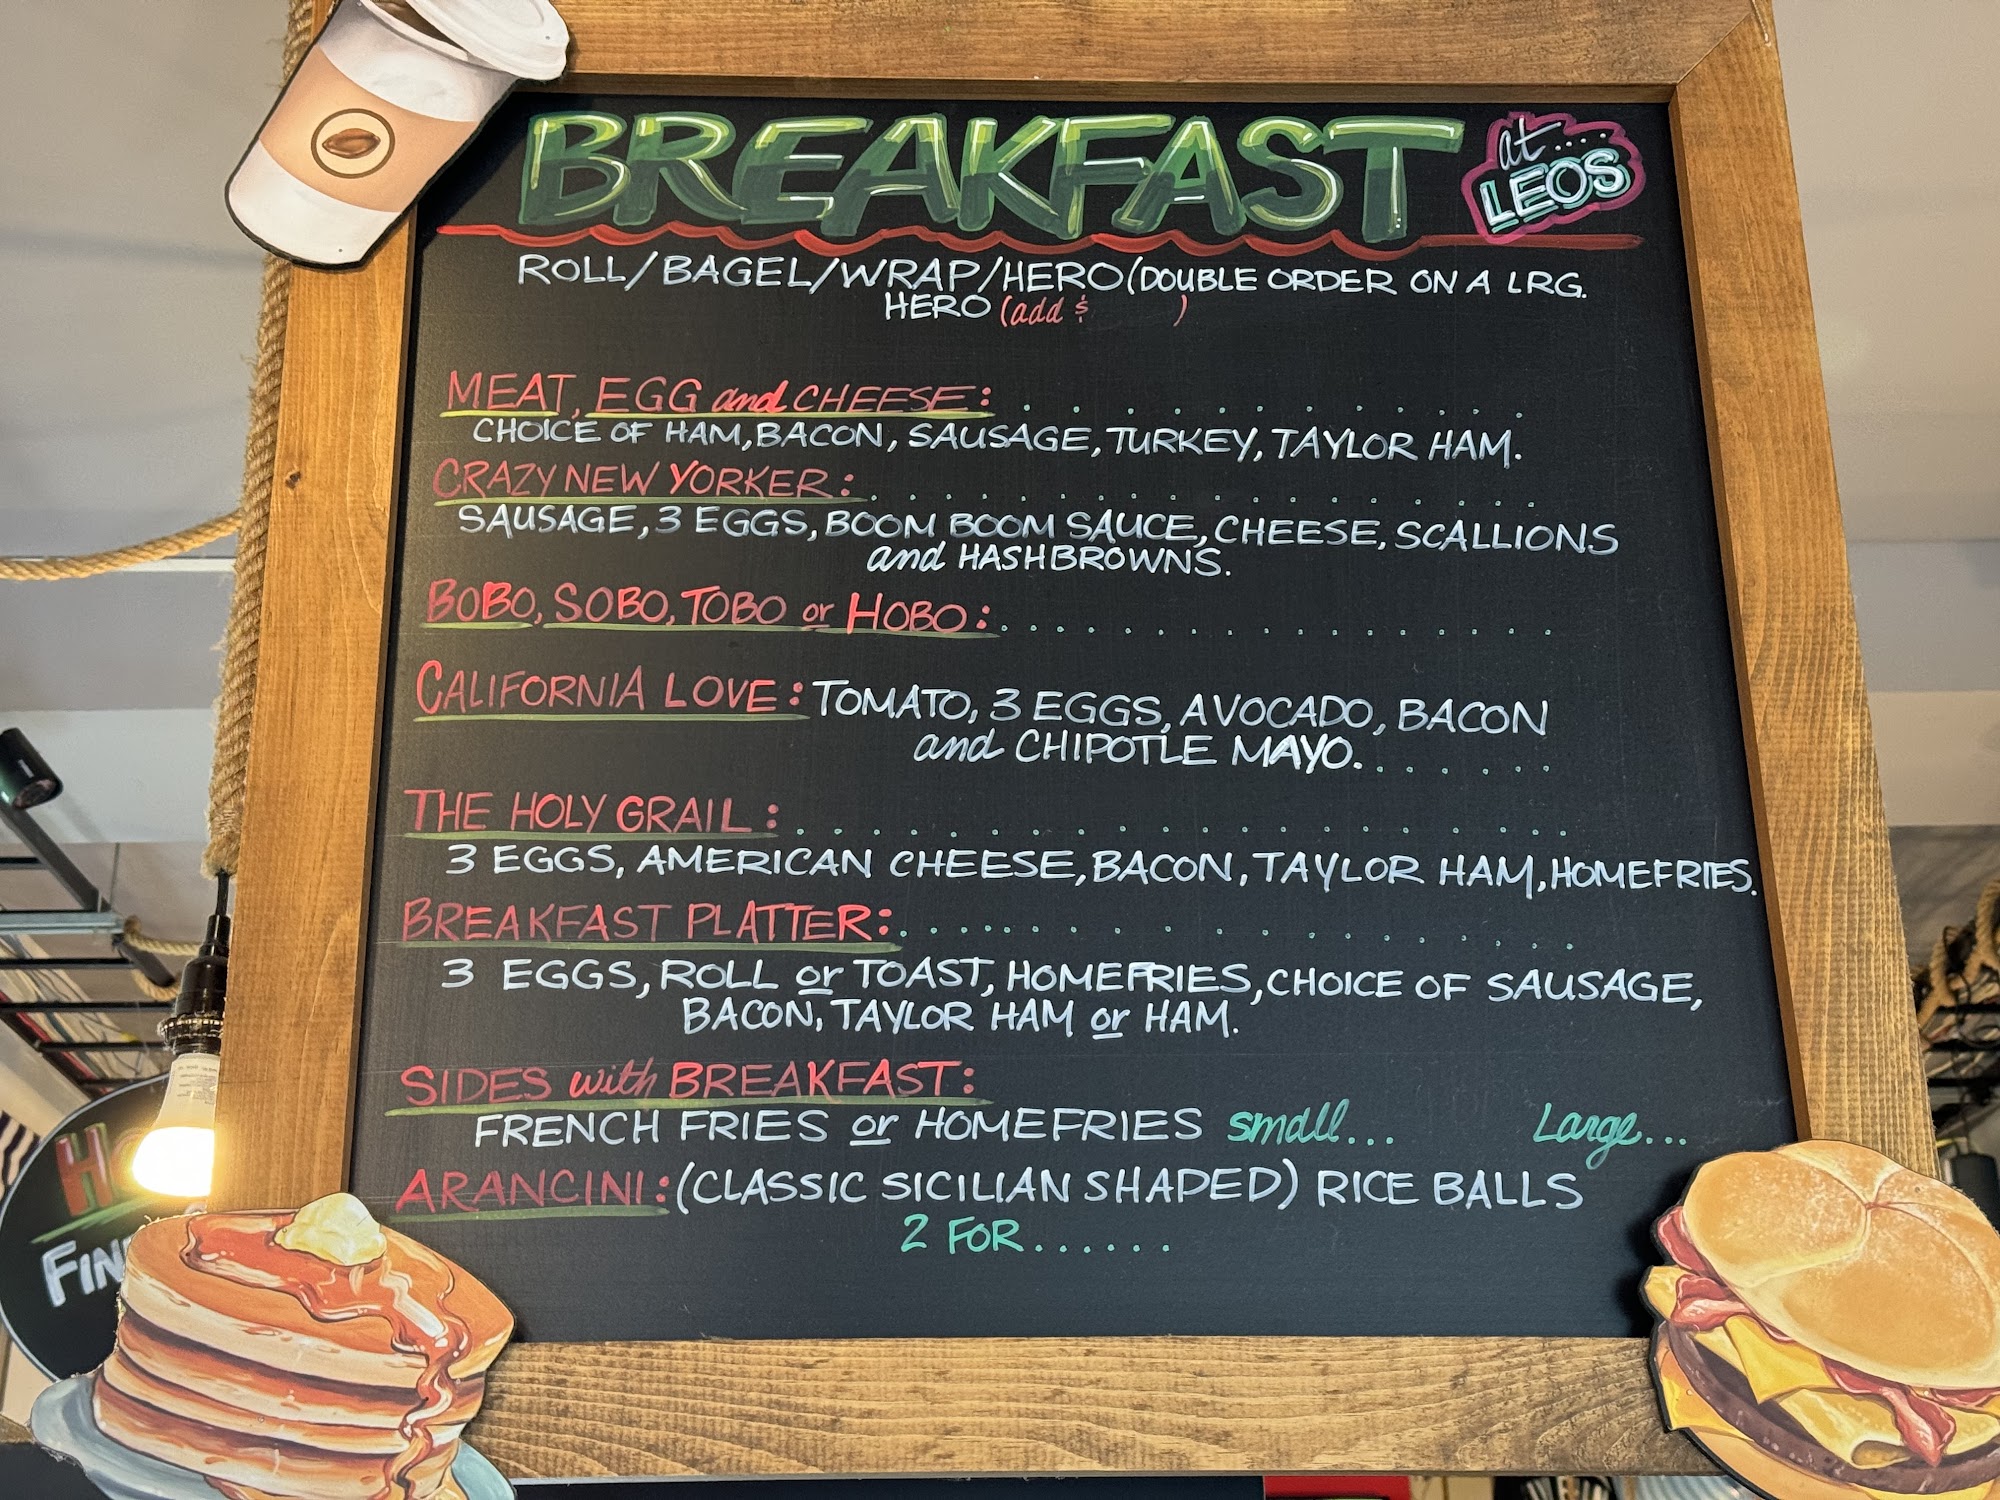 BREAKFAST at... LEOS
ROLL/BAGEL/WRAP/HERO (DOUBLE ORDER ON A LRG.
HERO (add $ )
MEAT, EGG and CHEESE: . . . . . . . . . . . . . .
CHOICE OF HAM, BACON, SAUSAGE, TURKEY, TAYLOR HAM.
CRAZY NEW YORKER: . . . . . . . . . . . . . . . . . .
SAUSAGE, 3 EGGS, BOOM BOOM SAUCE, CHEESE, SCALLIONS
and HASHBROWNS.
BOBO, SOBO, TOBO or HOBO: . . . . . . . . . . . . . . . . .
CALIFORNIA LOVE: TOMATO, 3 EGGS, AVOCADO, BACON
and CHIPOTLE MAYO. . . . . . .
THE HOLY GRAIL: . . . . . . . . . . . . . . . . . . . .
3 EGGS, AMERICAN CHEESE, BACON, TAYLOR HAM, HOMEFRIES.
BREAKFAST PLATTER: . . . . . . . . . . . . . . . . . . .
3 EGGS, ROLL or TOAST, HOMEFRIES, CHOICE OF SAUSAGE,
BACON, TAYLOR HAM or HAM.
SIDES with BREAKFAST:
FRENCH FRIES or HOMEFRIES small... Large...
ARANCINI: (CLASSIC SICILIAN SHAPED) RICE BALLS
2 FOR......